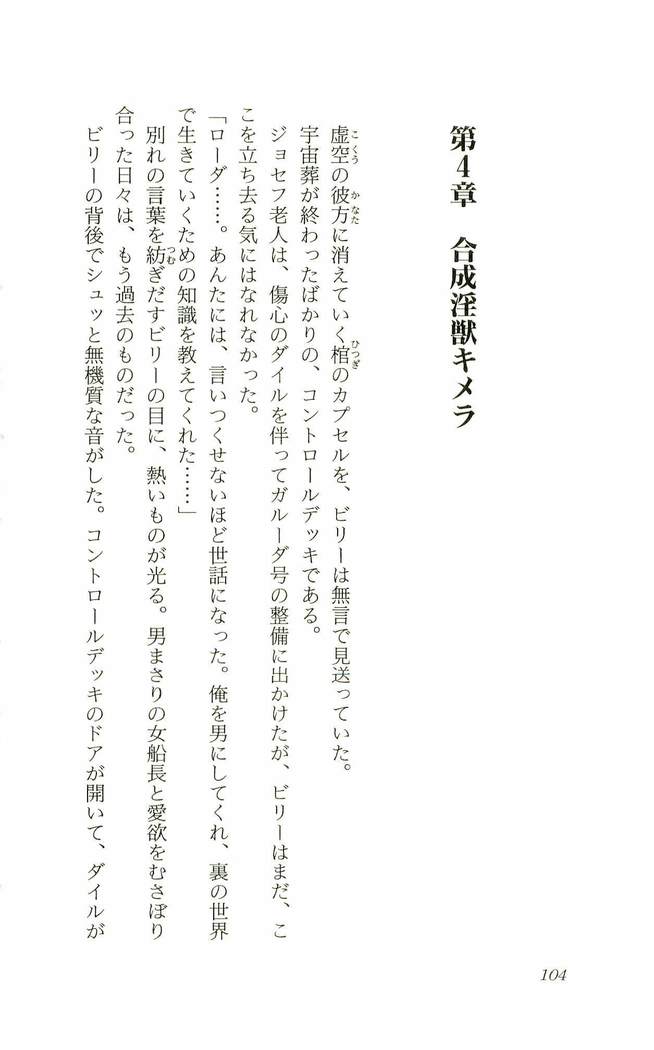 第4章　合成淫獣キメラ
虚空の彼方に消えていく棺のカプセルを、ビリーは無言で見送っていた。
宇宙葬が終わったばかりの、コントロールデッキである。
ジョセフ老人は、傷心のダイルを伴ってガルーダ号の整備に出かけたが、ビリーはまだ、こ
こを立ち去る気にはなれなかった。
「ローダ……。あんたには、言いつくせないほど世話になった。俺を男にしてくれ、裏の世界
で生きていくための知識を教えてくれた……」
別れの言葉を紡ぎだすビリーの目に、熱いものが光る。男まさりの女船長と愛欲をむさぼり
合った日々は、もう過去のものだった。
ビリーの背後でシュッと無機質な音がした。コントロールデッキのドアが開いて、ダイルが
104